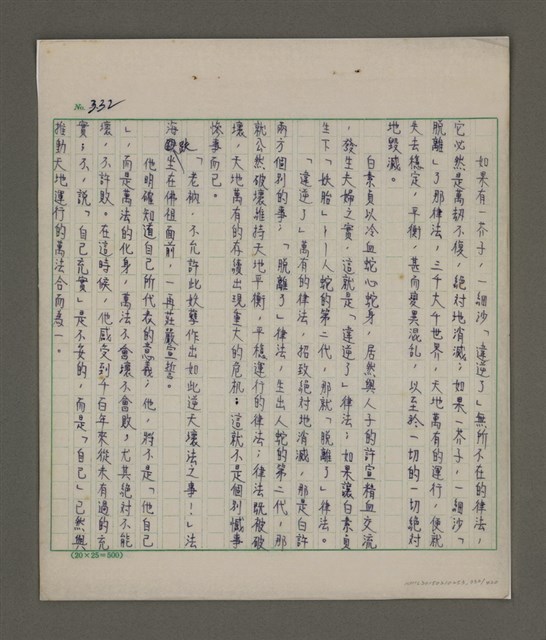 No. 332
如果有一芥子，一細沙「違逆了」無所不在的律法，
它必然是萬劫不復、絕對地消滅；如果一芥子，一細沙「
脫離」了那律法，三千大千世界，天地萬有的運行，便就
失去穩定，平衡，甚而變異混亂，以至於一切的一切絕對
地毀滅。
白素貞以冷血蛇心蛇身，居然與人子的許宣精血交流
，發生夫婦之實，這就是「違逆了」律法；如果讓白素貞
生下「妖胎」——人蛇的第二代，那就「脫離了」律法。
「違逆了」萬有的律法，招致絕對地消滅，那是白許
兩方個別的事；「脫離了」律法，生出人蛇的第二代，那
就公然破壞維持天地平衡，平穩運行的律法；律法既被破
壞，天地萬有的存續出現重大的危机。這就不是個別憾事
慘事而已。
「老衲，不允許此妖孽作出如此逆天壞法之事！」法
海趺坐在佛祖面前，一再莊嚴宣誓。
他明確知道自己所代表的意義；他，將不是「他自己
」，而是萬法的化身，萬法不會壞不會敗，尤其絕對不能
壞，不許敗。在這時候，他感受到千百年來從未有過的充
實；不，說「自己充實」是不妥的，而是「自己」已然與
推動天地運行的萬法合而為一。
(20×25=500)